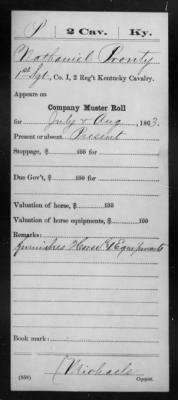 P 2 Cav. Ky.
Nathaniel Prouty
1st Sgt, Co. I, 2 Reg't Kentucky Cavalry.
Appears on
Company Muster Roll
for July & Aug, 1863.
Present or absent Present
Stoppage, $ 100 for
Due Gov't, $ 100 for
Valuation of horse, $ 100
Valuation of horse equipments, $ 100
Remarks:
furnishes Horse & Equipments
Book mark:
Michaels
(858) Copyist.